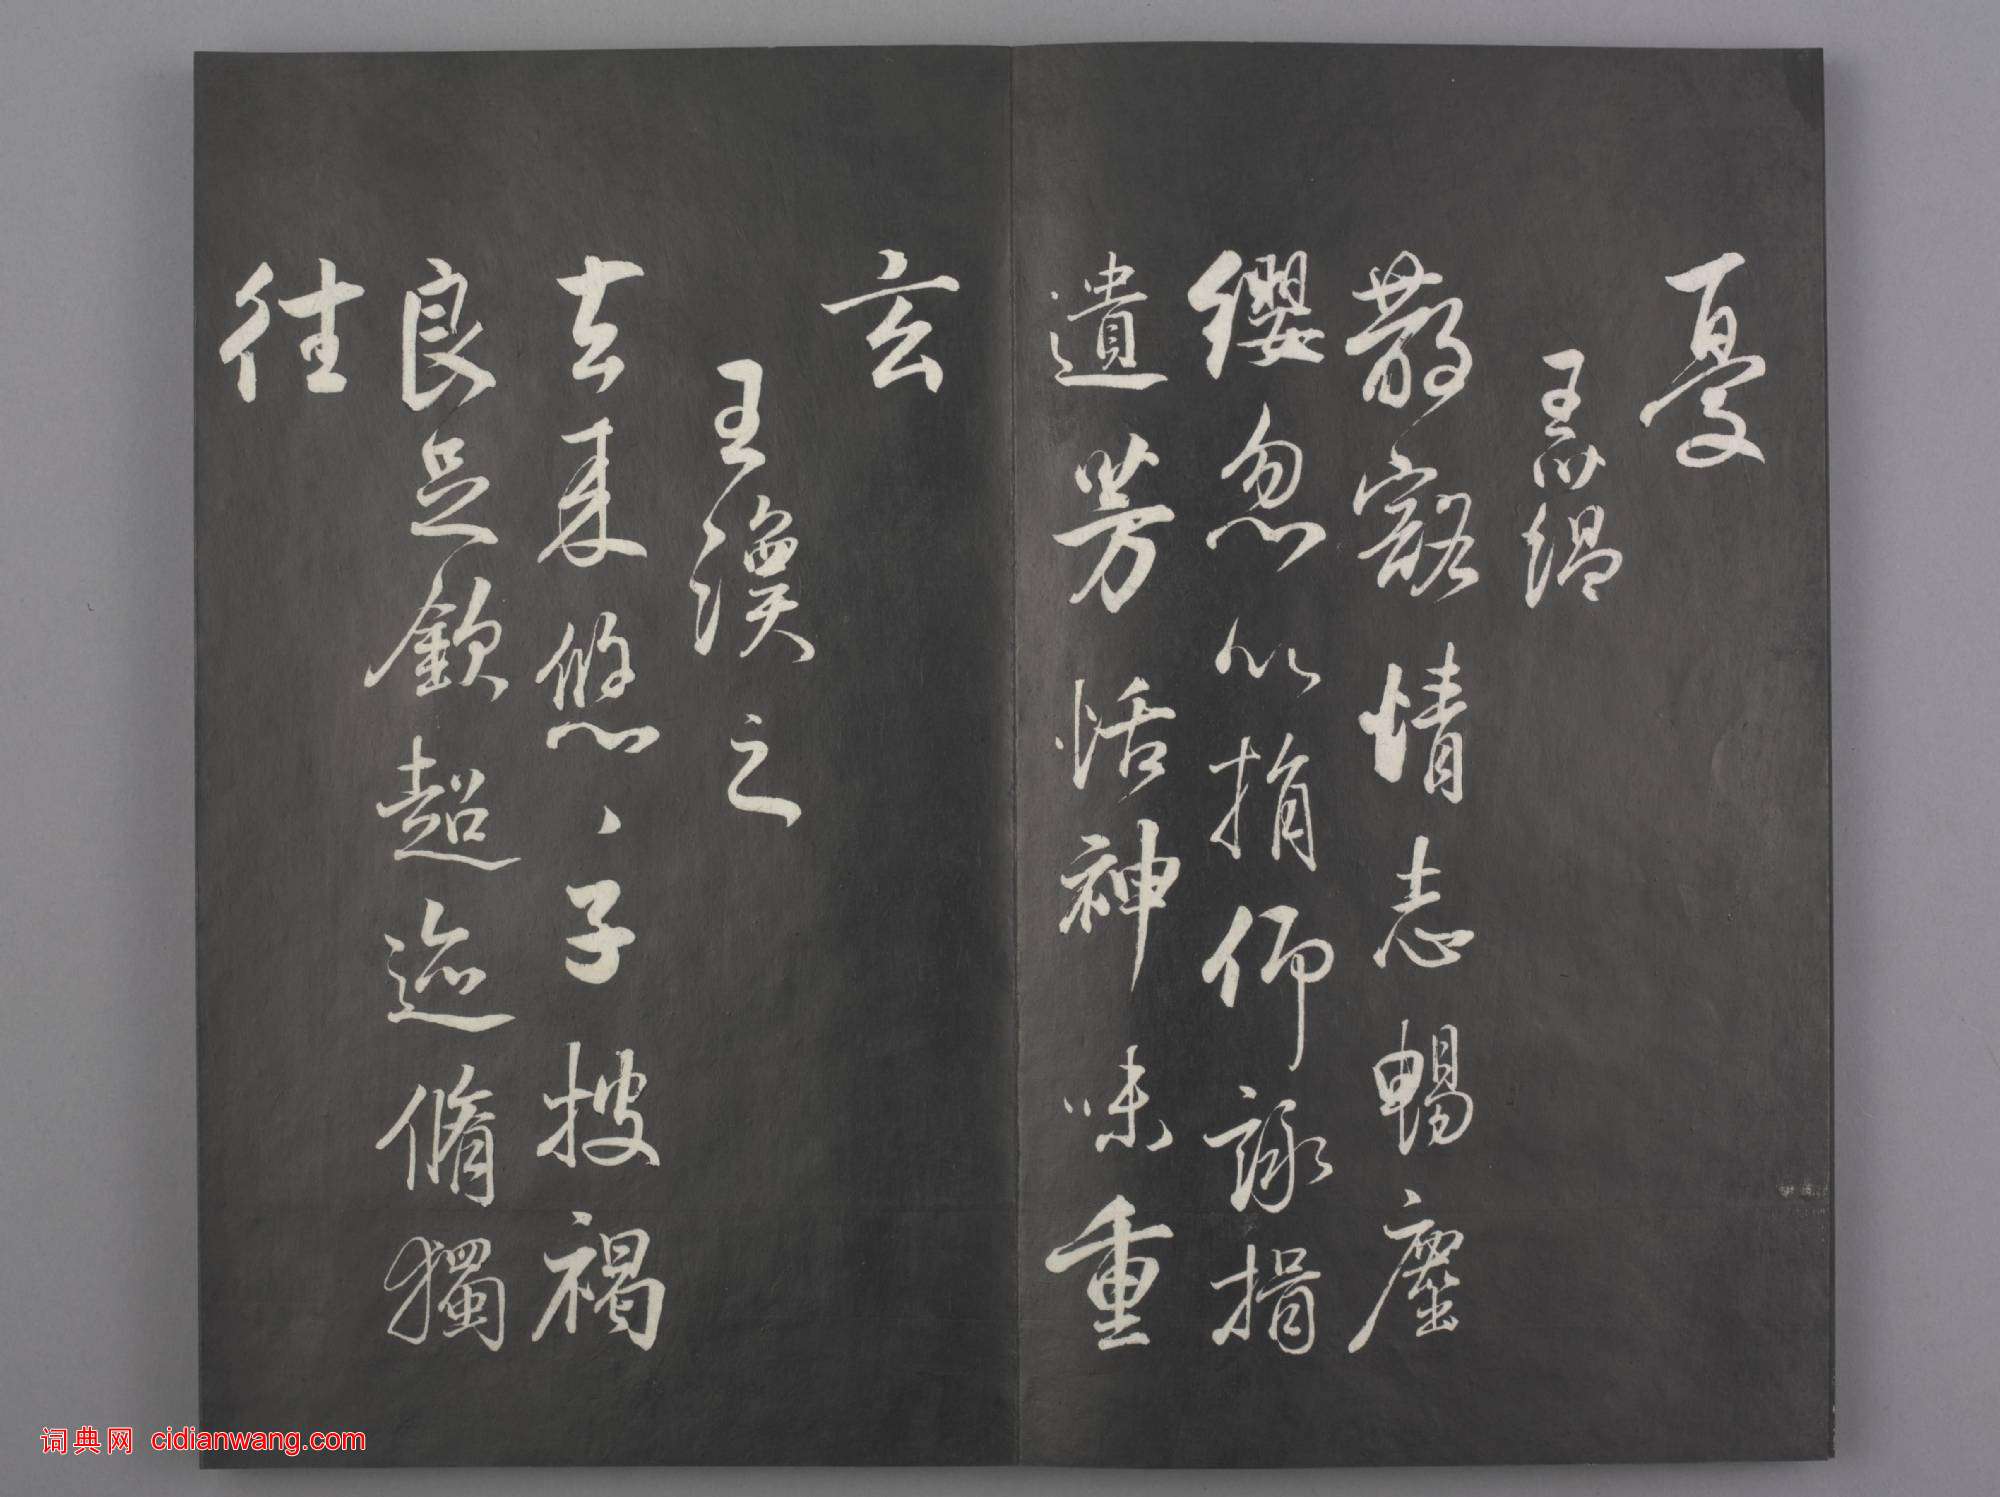 憂
王蘊
散豁情志暢塵
纓忽以捐仰詠揖
遺芳恬神味重
玄
王渙之
去來悠々子披褐
良足欽超迹脩獨
往
词典网 cidianwang.com